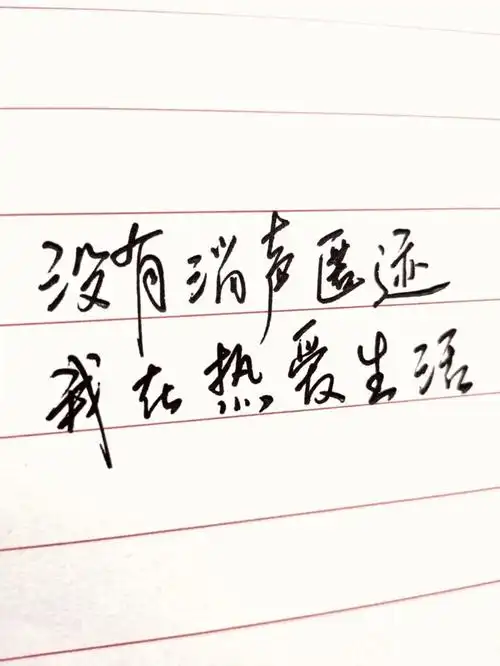 没有消声匿迹
我在热爱生活